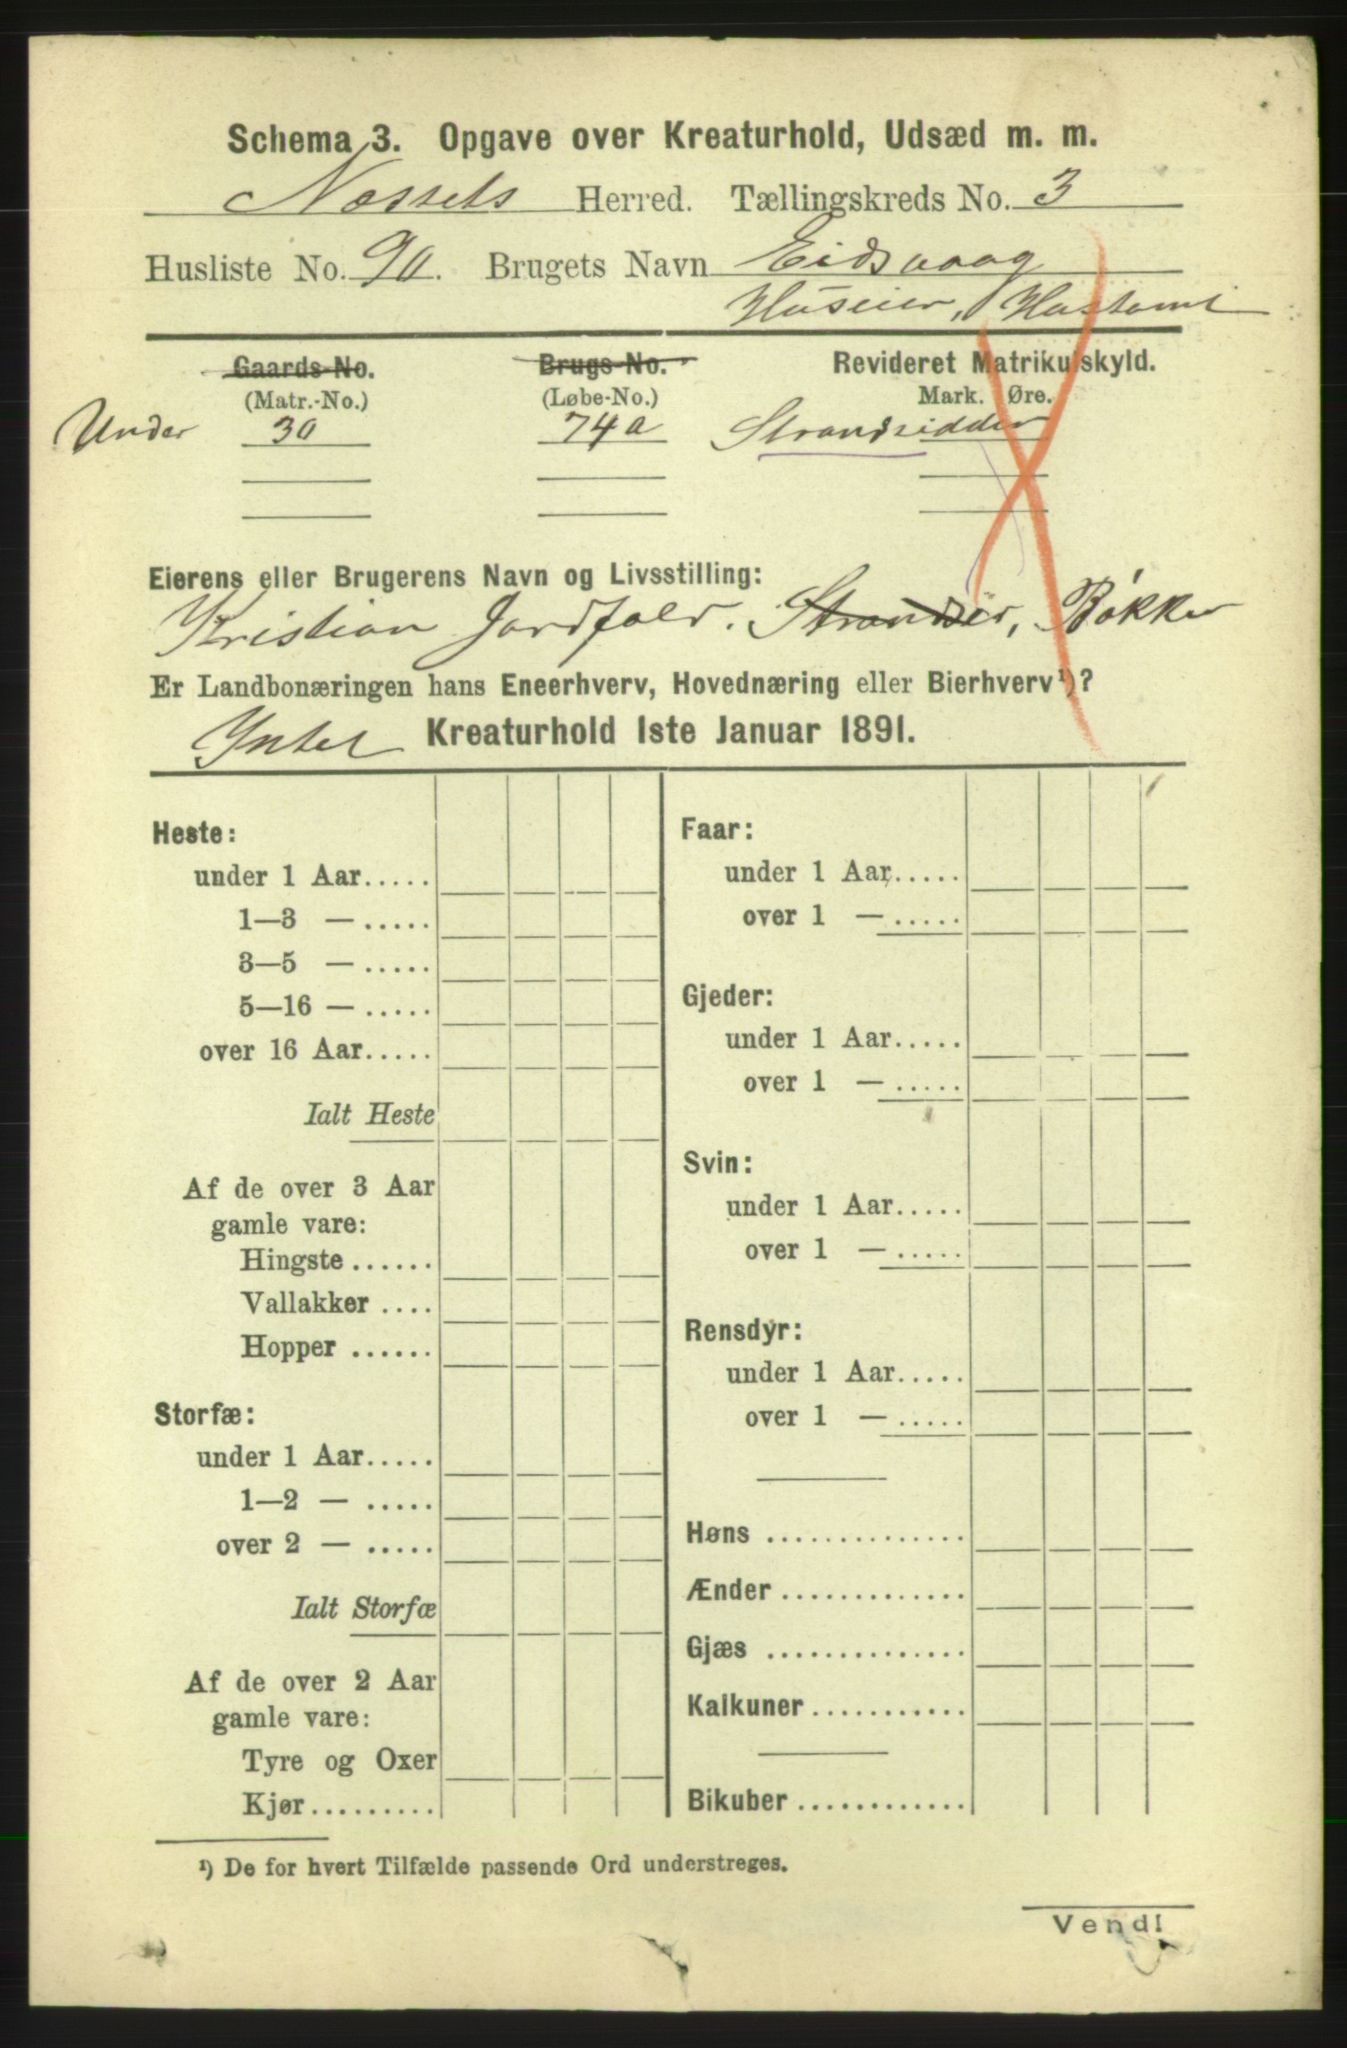 Schema 3. Opgave over Kreaturhold, Udsæd m. m.
Næssets Herred. Tællingskreds No. 3
Husliste No. 90. Brugets Navn Eidsvaag
Huseier,
Gaards-No. Brugs-No. Revideret Matrikulskyld.
(Matr.-No.) (Løbe-No.) Mark. Øre.
Under 30 74a Strandsidder
Eierens eller Brugerens Navn og Livsstilling:
Kristian Jordfald. Strandsid, Bøkker
Er Landbonæringen hans Eneerhverv, Hovednæring eller Bierhverv¹)?
Yntet Kreaturhold 1ste Januar 1891.
Heste:
under 1 Aar.....
1—3 — .....
3—5 — .....
5—16 — .....
over 16 Aar.....
Ialt Heste
Af de over 3 Aar
gamle vare:
Hingste ......
Vallakker ....
Hopper ......
Storfæ:
under 1 Aar.....
1—2 — .....
over 2 — .....
Ialt Storfæ
Af de over 2 Aar
gamle vare:
Tyre og Oxer
Kjør.........
Faar:
under 1 Aar.....
over 1 — .....
Gjeder:
under 1 Aar.....
over 1 — .....
Svin:
under 1 Aar.....
over 1 — .....
Rensdyr:
under 1 Aar.....
over 1 — .....
Høns ..............
Ænder .............
Gjæs ..............
Kalkuner ...........
Bikuber ............
¹) De for hvert Tilfælde passende Ord understreges.
Vend!